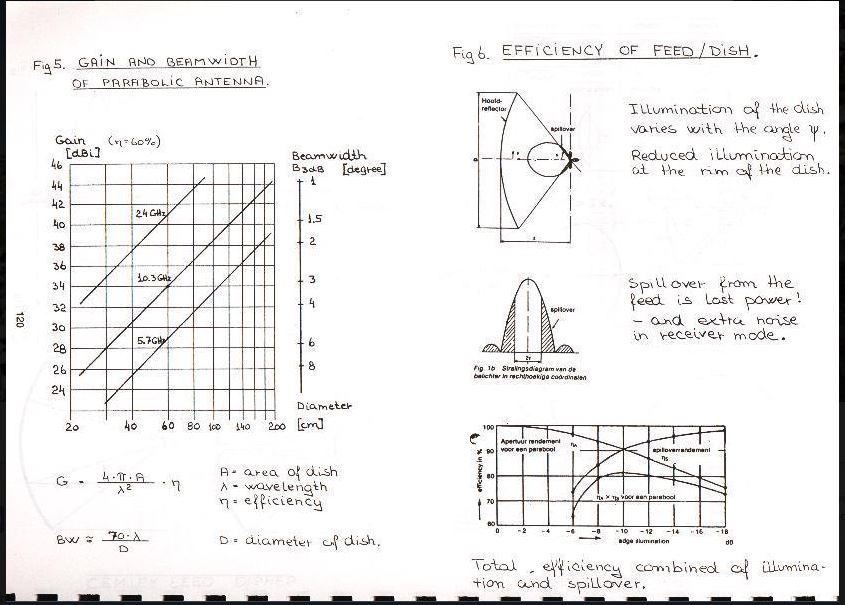 Fig 5. GAIN AND BEAMWIDTH
OF PARABOLIC ANTENNA.
Gain (η=60%)
[dBi]
46
44
42
40
38
36
34
32
30
28
26
24
24 GHz
10.3 GHz
5.7 GHz
20 40 60 80 100 140 200
Beamwidth
B3dB [degree]
1
1.5
2
3
4
6
8
Diameter
[cm]
G = 4·π·A / λ² · η
A = area of dish
λ = wavelength
η = efficiency
BW ≈ 70·λ / D
D = diameter of dish.
120
Fig 6. EFFICIENCY OF FEED/DISH.
Hoofd-
reflector
spillover
Illumination of the dish
varies with the angle ψ.
Reduced illumination
at the rim of the dish.
spillover
Fig. 1b Stralingsdiagram van de
belichter in rechthoekige coördinaten
Spillover from the
feed is lost power!
- and extra noise
in receiver mode.
100
90
80
70
60
efficiency in %
Apertuur rendement
voor een parabool
ηA
spilloverrendement
ηS
ηA x ηS voor een parabool
0 -2 -4 -6 -8 -10 -12 -14 -16 -18
edge illumination dB
Total efficiency combined of illumina-
tion and spillover.